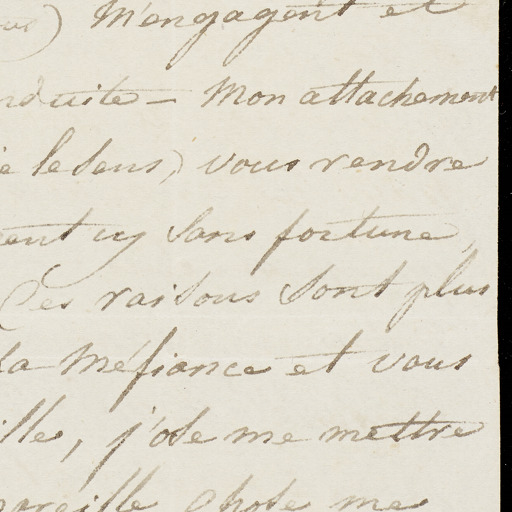 M'engagent et
nduite – Mon attachement
le sens,) vous rendre
ent icy sans fortune,
Ces raisons sont plus
la Méfiance et vous
ille, j'ose me mettre
pareille chose me